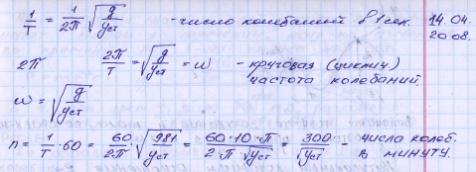 1/T = 1/2π √(g/yст) - число колебаний в 1 сек. 14.04.
2008.
2π 2π/T = √(g/yст) = ω - круговая (циклич)
частота колебаний.
ω = √(g/yст)
n = 1/T · 60 = 60/2π √(981/yст) = 60·10·π/2·π√yст = 300/√yст - число колеб.
в минуту.